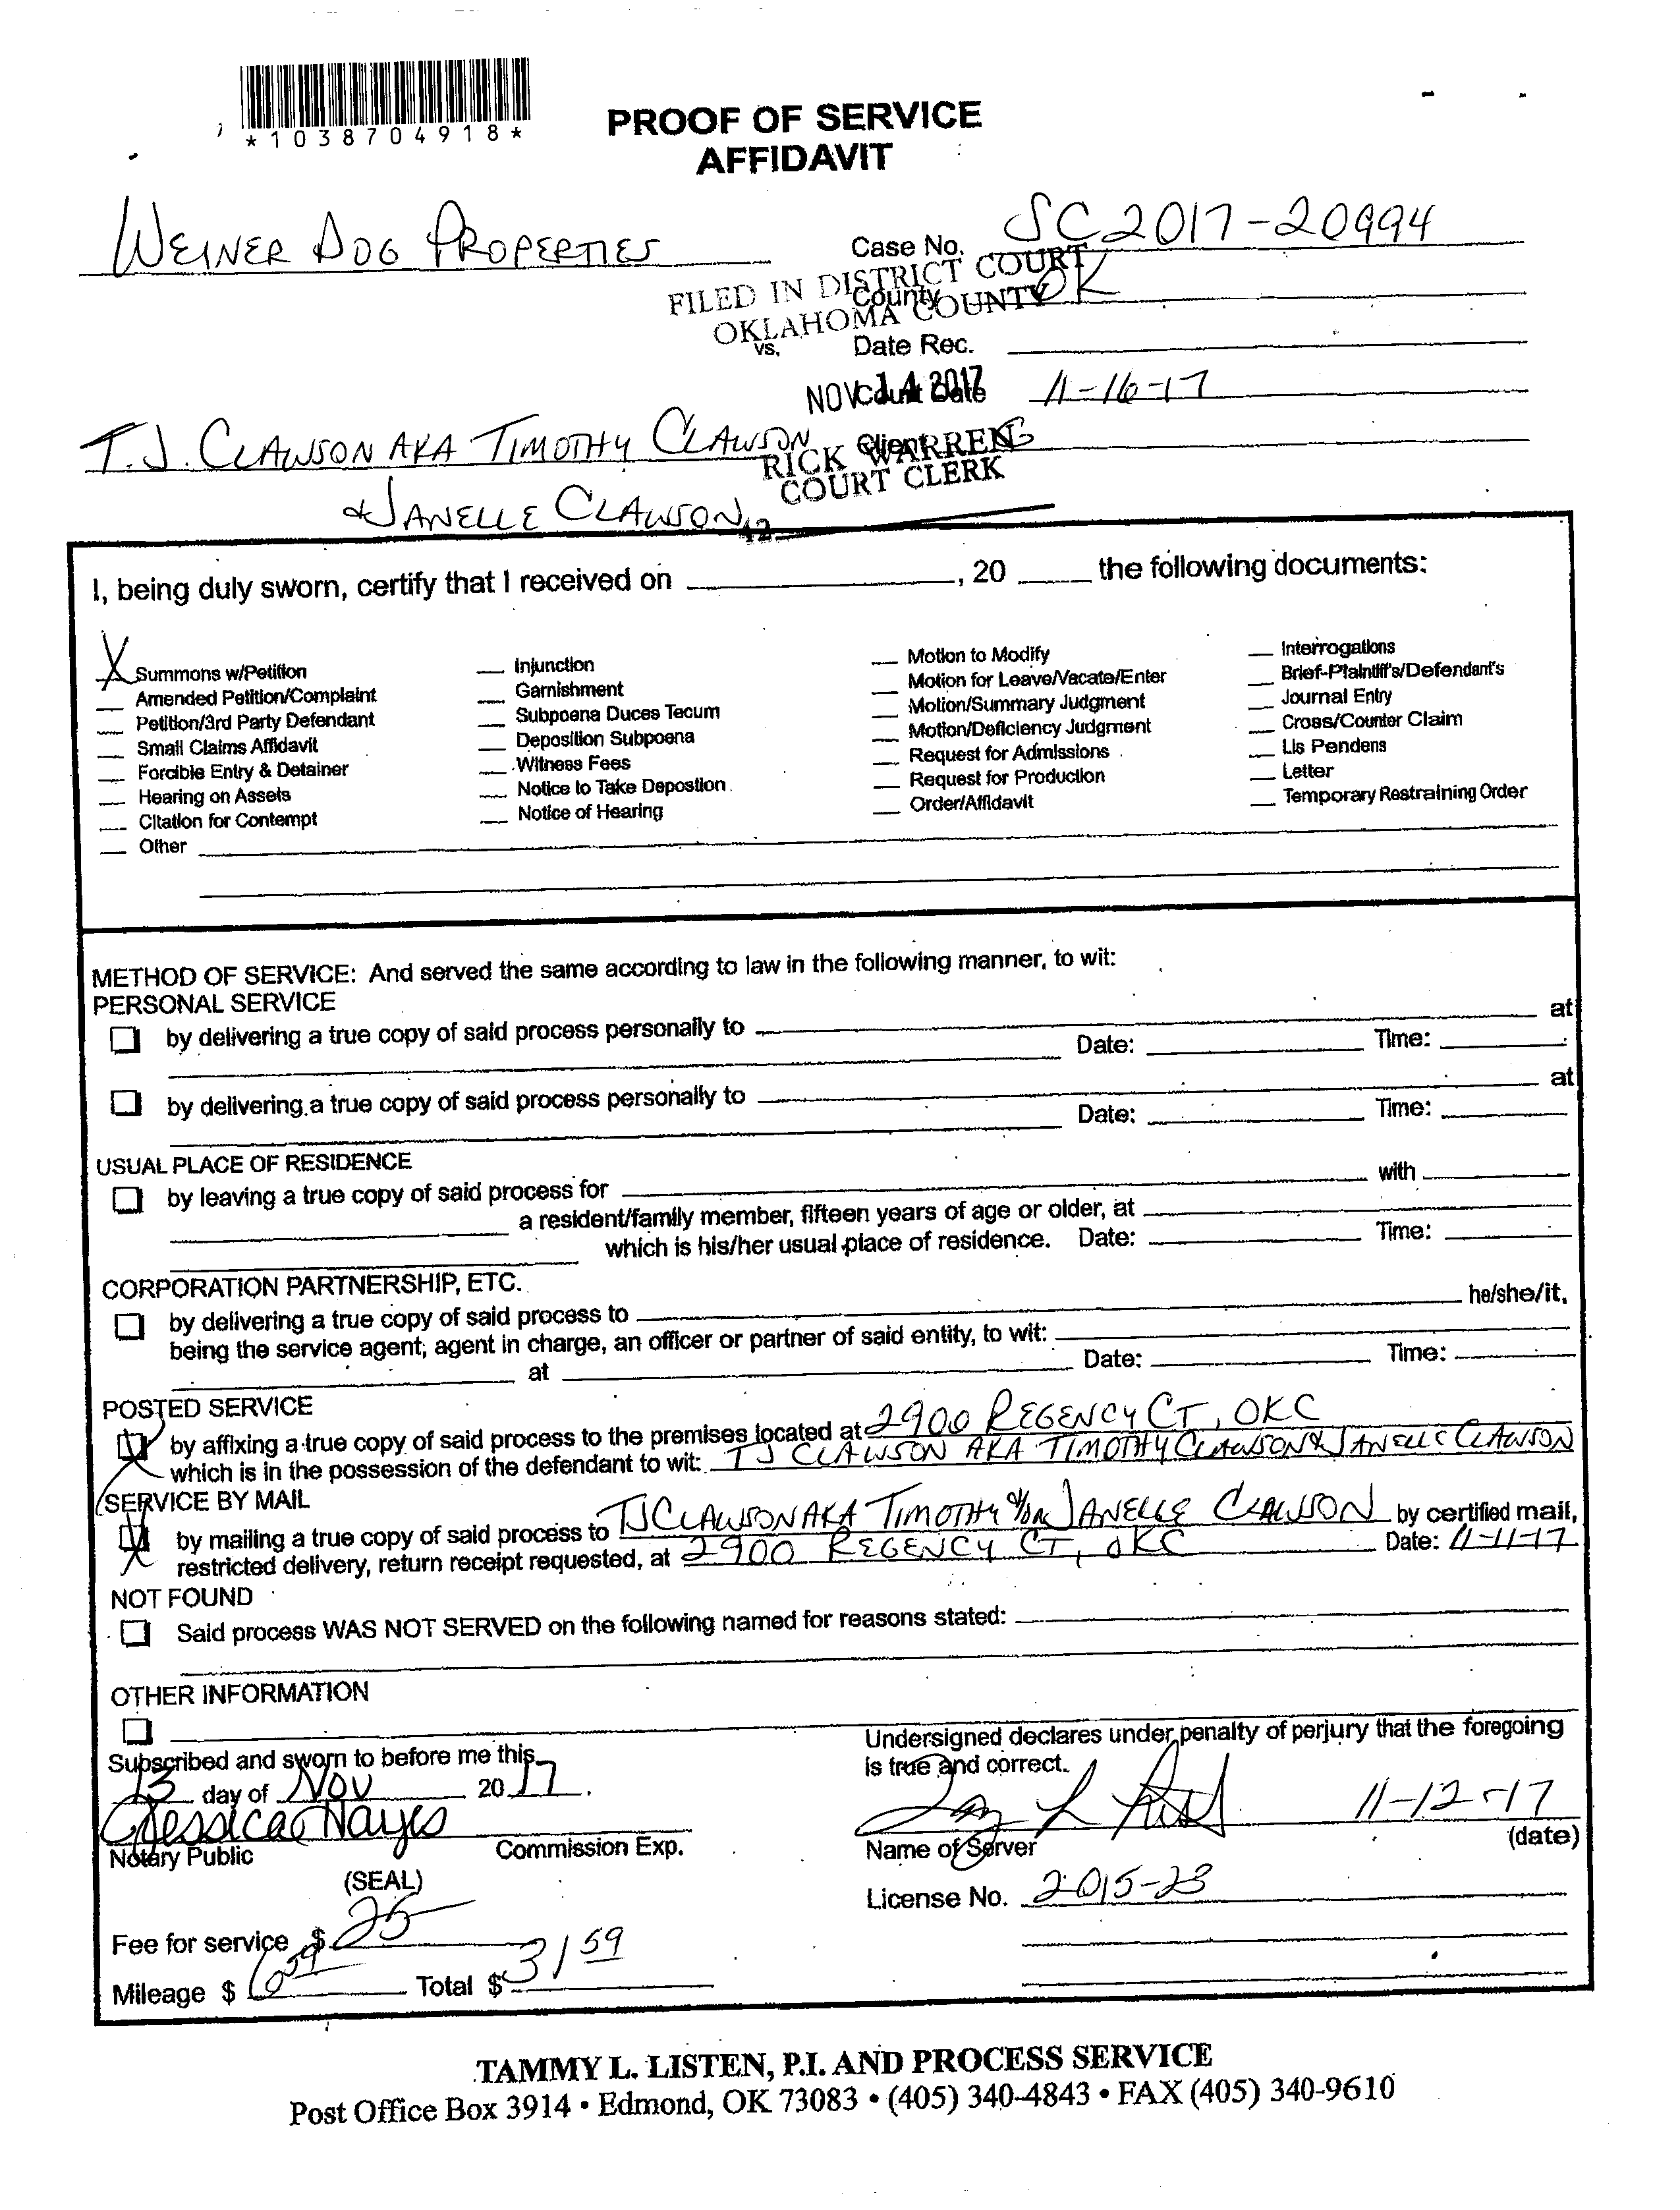 *1038704918*
PROOF OF SERVICE
AFFIDAVIT
WEINER DOG PROPERTIES
Case No. SC2017-20994
FILED IN DISTRICT COURT
County OK
OKLAHOMA COUNTY
vs.
Date Rec.
NOV 14 2017
Court Date 11-16-17
T.J. CLAWSON AKA TIMOTHY CLAWSON
Client
RICK WARREN
COURT CLERK
& JANELLE CLAWSON
42
I, being duly sworn, certify that I received on ____, 20 ____ the following documents:
X Summons w/Petition
__ Amended Petition/Complaint
__ Petition/3rd Party Defendant
__ Small Claims Affidavit
__ Forcible Entry & Detainer
__ Hearing on Assets
__ Citation for Contempt
__ Other
__ Injunction
__ Garnishment
__ Subpoena Duces Tecum
__ Deposition Subpoena
__ Witness Fees
__ Notice to Take Depostion
__ Notice of Hearing
__ Motion to Modify
__ Motion for Leave/Vacate/Enter
__ Motion/Summary Judgment
__ Motion/Deficiency Judgment
__ Request for Admissions
__ Request for Production
__ Order/Affidavit
__ Interrogations
__ Brief-Plaintiff's/Defendant's
__ Journal Entry
__ Cross/Counter Claim
__ Lis Pendens
__ Letter
__ Temporary Restraining Order
METHOD OF SERVICE: And served the same according to law in the following manner, to wit:
PERSONAL SERVICE
by delivering a true copy of said process personally to ____ at
____ Date: ____ Time: ____
by delivering a true copy of said process personally to ____ at
____ Date: ____ Time: ____
USUAL PLACE OF RESIDENCE
by leaving a true copy of said process for ____ with ____
____ a resident/family member, fifteen years of age or older, at ____
____ which is his/her usual place of residence. Date: ____ Time: ____
CORPORATION PARTNERSHIP, ETC.
by delivering a true copy of said process to ____ he/she/it,
being the service agent, agent in charge, an officer or partner of said entity, to wit: ____
____ at ____ Date: ____ Time: ____
POSTED SERVICE
X by affixing a true copy of said process to the premises located at 2900 REGENCY CT, OKC
which is in the possession of the defendant to wit: TJ CLAWSON AKA TIMOTHY CLAWSON & JANELLE CLAWSON
SERVICE BY MAIL
X by mailing a true copy of said process to TJ CLAWSON AKA TIMOTHY &/OR JANELLE CLAWSON by certified mail,
restricted delivery, return receipt requested, at 2900 REGENCY CT, OKC Date: 11-11-17
NOT FOUND
Said process WAS NOT SERVED on the following named for reasons stated: ____
OTHER INFORMATION
Undersigned declares under penalty of perjury that the foregoing
is true and correct.
Subscribed and sworn to before me this
13 day of Nov 20 17.
Jessica Hayes
11-12-17
Notary Public Commission Exp.
Name of Server (date)
(SEAL)
License No. 2015-23
Fee for service $ 25
Mileage $ 6 59 Total $ 31 59
TAMMY L. LISTEN, P.I. AND PROCESS SERVICE
Post Office Box 3914 • Edmond, OK 73083 • (405) 340-4843 • FAX (405) 340-9610